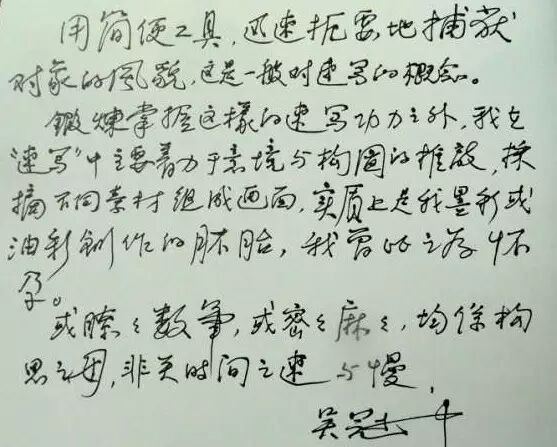 用简便工具,迅速扼要地捕获
对象的风貌,这是一般对速写的概念。
锻炼掌握这样的速写功力之外,我在
“速写”中主要着力于意境与构图的推敲,採
摘不同素材组成画面,实质上是我墨彩或
油彩创作的胚胎,我曾的之为怀
孕。
或瞭々数笔,或密々麻々,均系构
思之母,非关时间之速与慢。
吴冠中